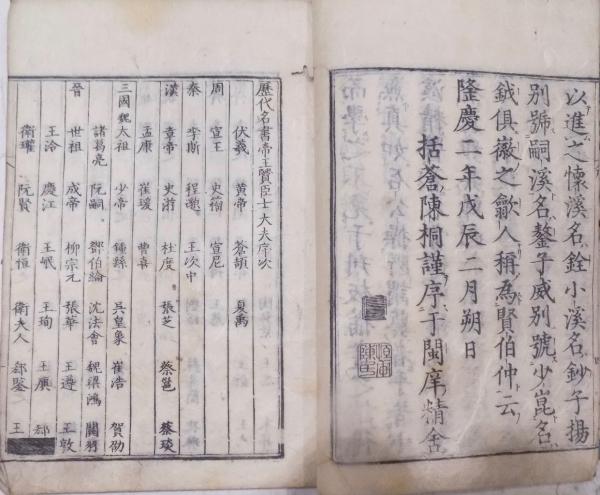 以進之懷溪名銓小溪名鈔子揚
別號嗣溪名鏊子威別號少崑名
鉞俱徽之歙人稱為賢伯仲云
隆慶二年戊辰二月朔日
括蒼陳桐謹序于閩庠精舍
歷代名書帝王賢臣士大夫序次
伏羲 黃帝 蒼頡 夏禹
周 宣王 史籀 宣尼
秦 李斯 程邈 王次中
漢 章帝 史游 杜度 張芝 蔡邕 蔡琰
孟康 崔瑗 曹喜
三國魏太祖 少帝 鍾繇 吳皇象 崔浩 賀劭
諸葛亮 阮嗣 沈法會 魏梁鴻
晉 世祖 成帝 柳宗元 張華 王遵 王敦
王洽 慶江 王岷 王珣 王廙 郄
衛瓘 阮賢 衛恒 衛夫人 郄鑒 王